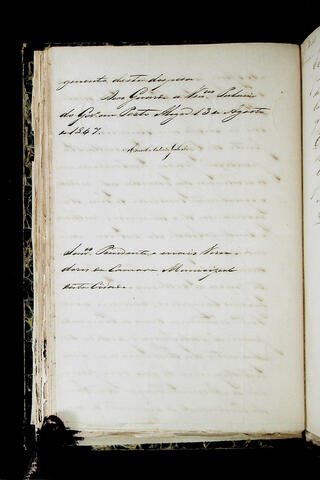 gamento desta despesa
Deos Guarde a V.mces Palacio
do Gov.º em Porto Alegre 13 de Agosto
de 1847.
Snr.es Presidente e mais Verea
dores da Camara Municipal
desta Cidade